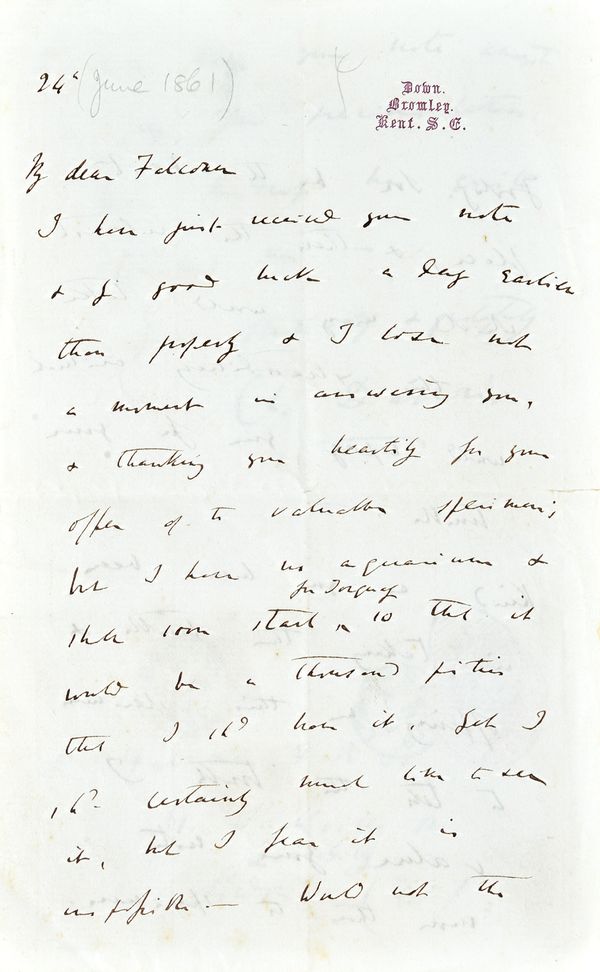 24th (June 1861)
Down.
Bromley.
Kent. S.E.
My dear Falconer
I have just received your note
& by good luck a day earlier
than properly & I lose not
a moment in answering you,
& thanking you heartily for your
offer of the valuable specimen;
but I have no aquarium &
shall soon start for Torquay, so that it
would be a thousand pities
that I shd have it. Yet I
shd certainly much like to see
it, but I fear it is
impossible.— Would not the